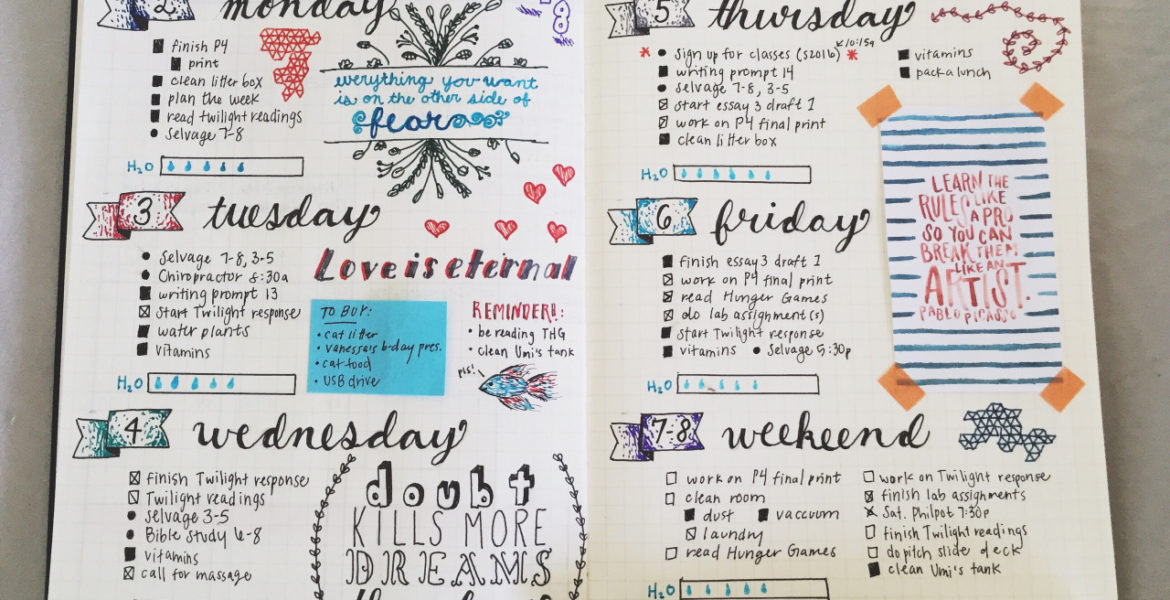 2 monday
finish P4
print
clean litter box
plan the week
read twilight readings
Selvage 7-8
H2O
everything you want
is on the other side of
fear
3 tuesday
Selvage 7-8, 3-5
Chiropractor 8:30a
writing prompt 13
Start Twilight response
water plants
vitamins
H2O
Love is eternal
TO BUY:
• cat litter
• vanessa's b-day pres.
• cat food
• USB drive
REMINDER!:
• be reading THG
• clean Umi's tank
pls!
4 wednesday
finish Twilight response
Twilight readings
Selvage 3-5
Bible study 6-8
vitamins
call for massage
doubt
KILLS MORE
DREAMS
5 thursday
* Sign up for classes (S2016) *
writing prompt 14
Selvage 7-8, 3-5
Start essay 3 draft 1
work on P4 final print
clean litter box
vitamins
pack a lunch
H2O
6 friday
finish essay 3 draft 1
work on P4 final print
read Hunger Games
do lab assignment(s)
Start Twilight response
vitamins • Selvage 5:30p
H2O
LEARN THE
RULES LIKE
A PRO
SO YOU CAN
BREAK THEM
LIKE AN
ARTIST.
PABLO PICASSO
7-8 weekend
work on P4 final print
clean room
dust vaccuum
laundry
read Hunger Games
work on Twilight response
finish lab assignments
Sat. Philpot 7:30p
finish Twilight readings
do pitch slide deck
clean Umi's tank
H2O